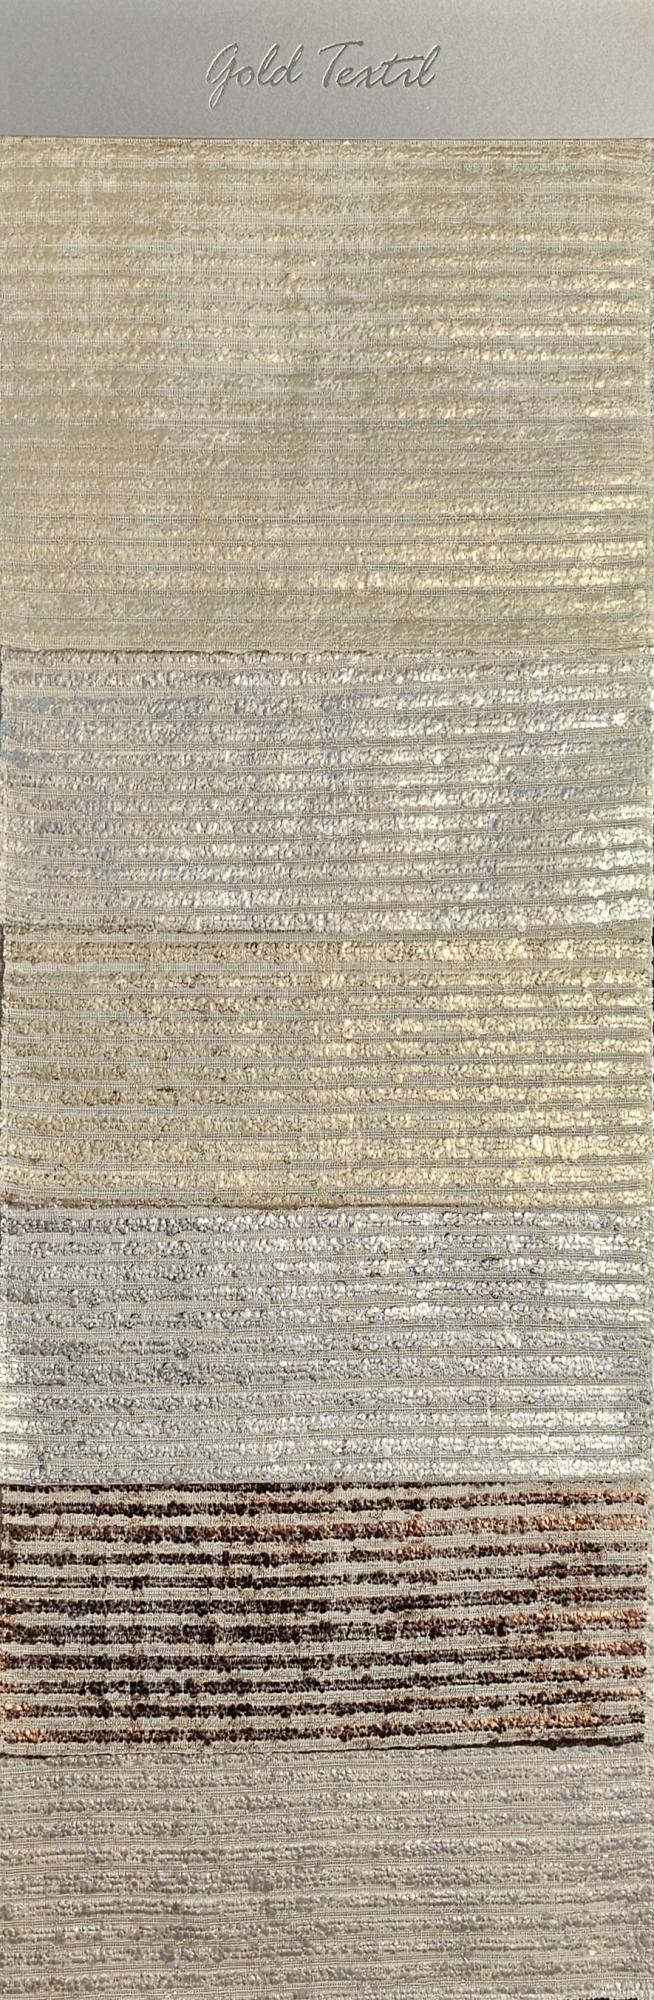 Gold Textil